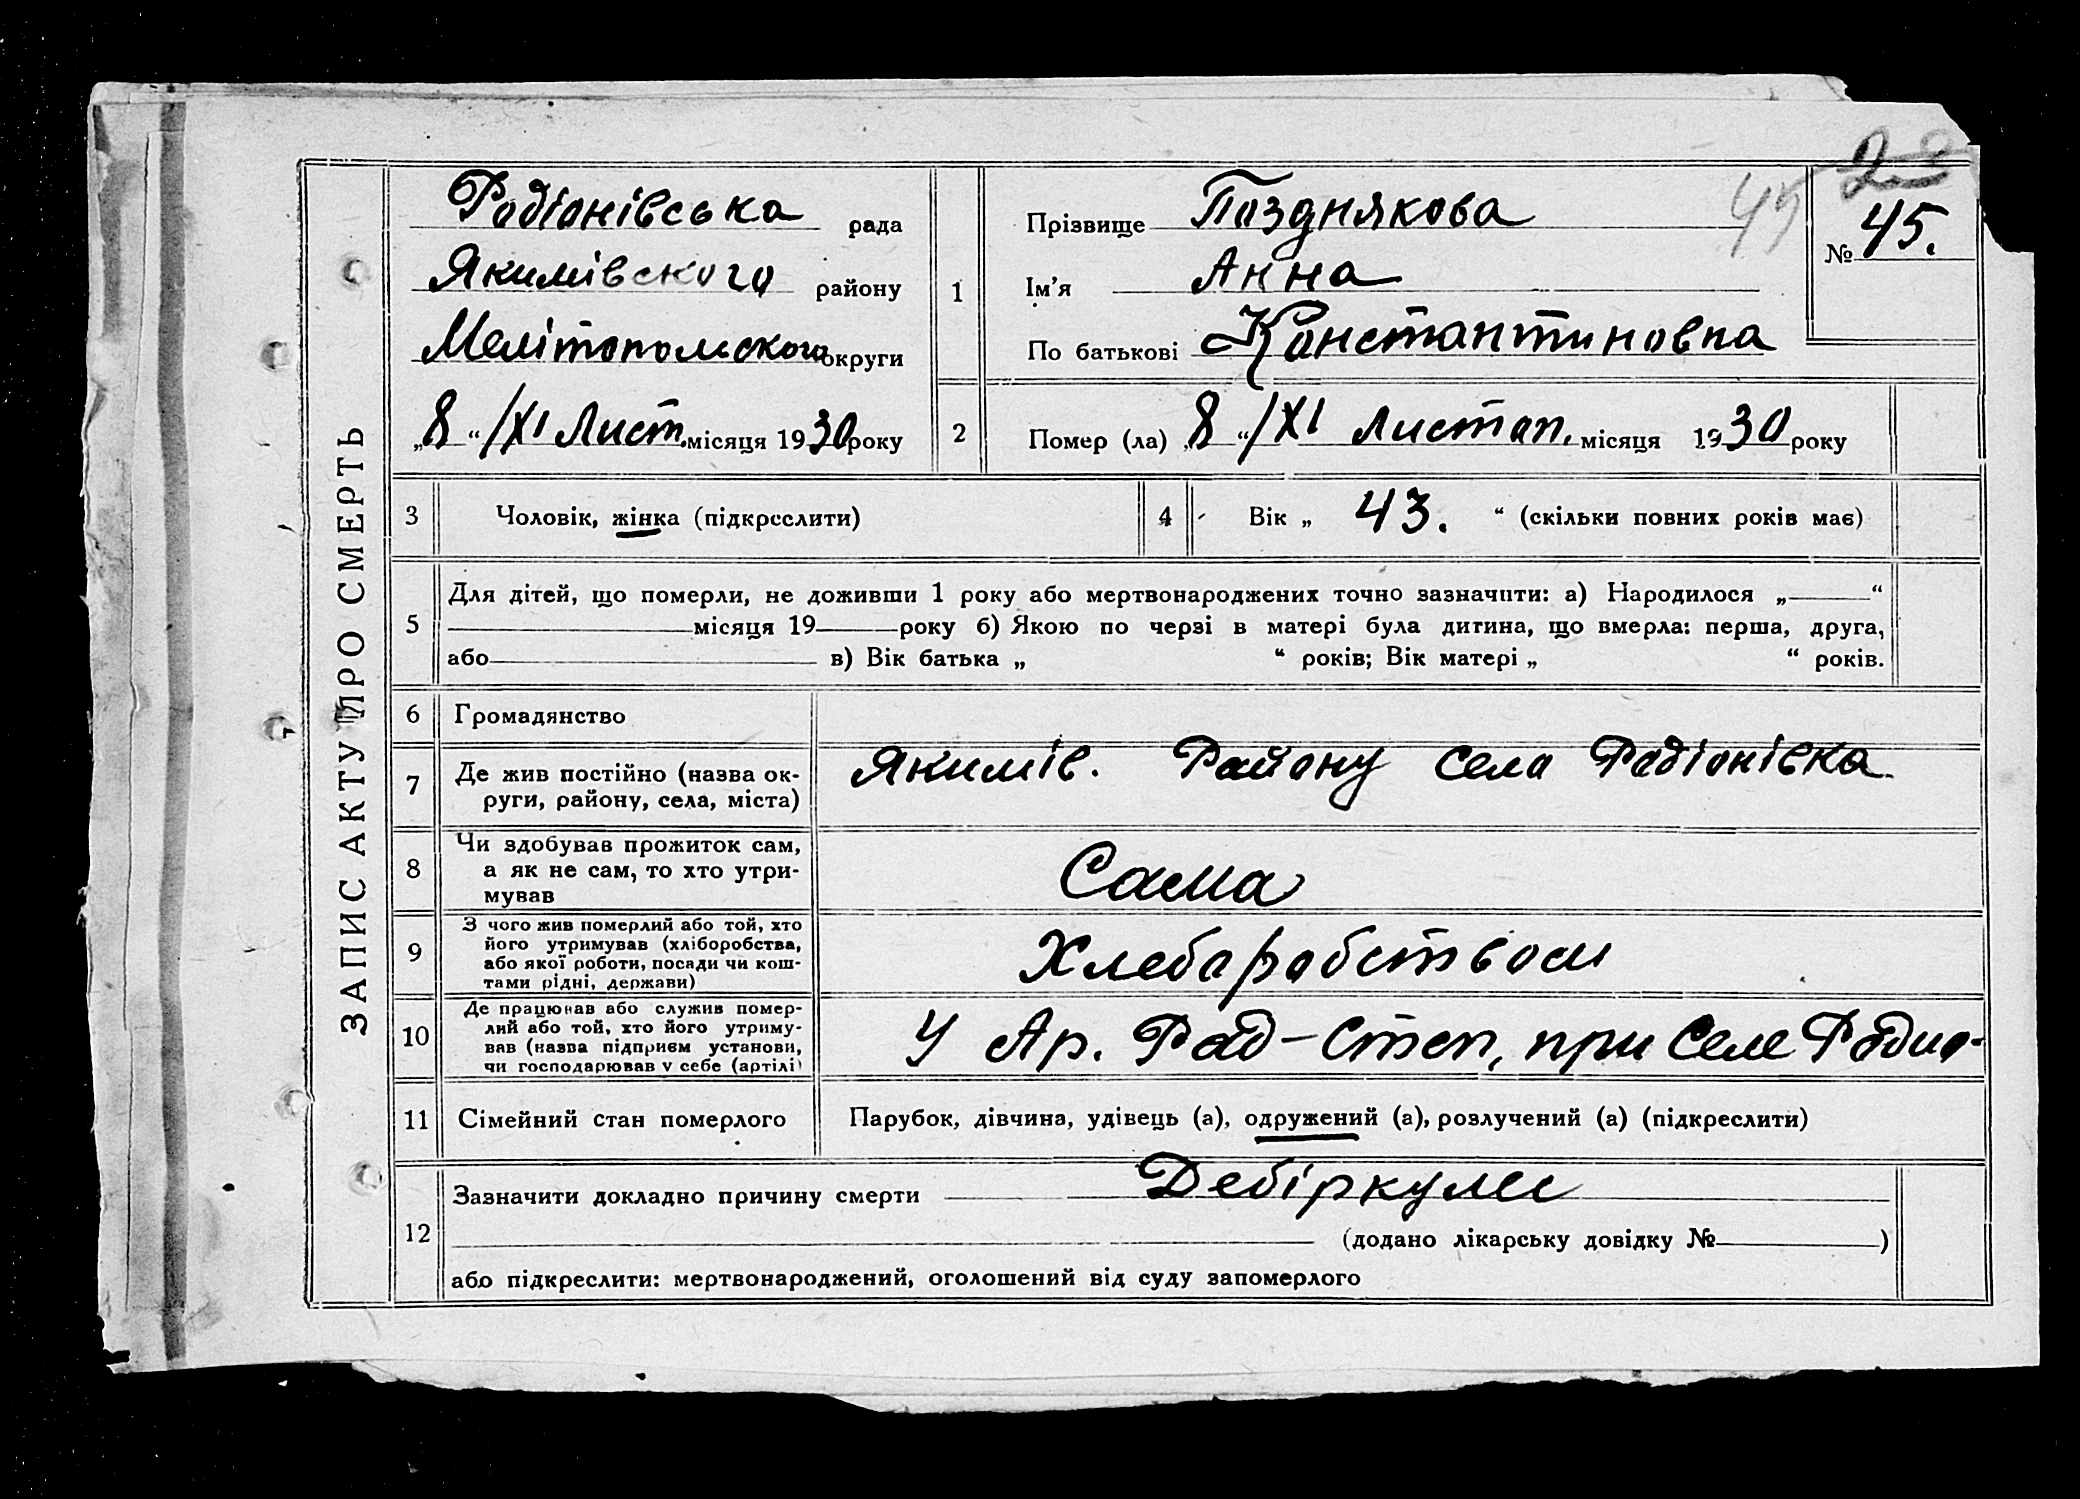 ЗАПИС АКТУ ПРО СМЕРТЬ
Радіонівська рада
Якимівского району
Мелітопольского округи
„8“ /XI Лист. місяця 1930 року
1
Прізвище Позднякова
Ім'я Анна
По батькові Константиновна
45
28
№ 45.
2
Помер (ла) „8“ /XI Листоп. місяця 1930 року
3 Чоловік, жінка (підкреслити)
4 Вік „ 43. “ (скільки повних років має)
5 Для дітей, що померли, не доживши 1 року або мертвонароджених точно зазначити: а) Народилося „ “
місяця 19 року б) Якою по черзі в матері була дитина, що вмерла: перша, друга,
або в) Вік батька „ “ років; Вік матері „ “ років.
6 Громадянство
7 Де жив постійно (назва ок-
руги, району, села, міста)
Якимів. Району Села Радіонівка
8 Чи здобував прожиток сам,
а як не сам, то хто утри-
мував
Сама
9 З чого жив померлий або той, хто
його утримував (хліборобства,
або якої роботи, посади чи кош-
тами рідні, держави)
Хлебаробством
10 Де працював або служив помер-
лий або той, хто його утриму-
вав (назва підприєм установи,
чи господарював у себе (артілі)
У Ар. Рад-Степ, при Селе Радио-
11 Сімейний стан померлого
Парубок, дівчина, удівець (а), одружений (а), розлучений (а) (підкреслити)
12 Зазначити докладно причину смерти Дебіркулес
(додано лікарську довідку № )
або підкреслити: мертвонароджений, оголошений від суду запомерлого